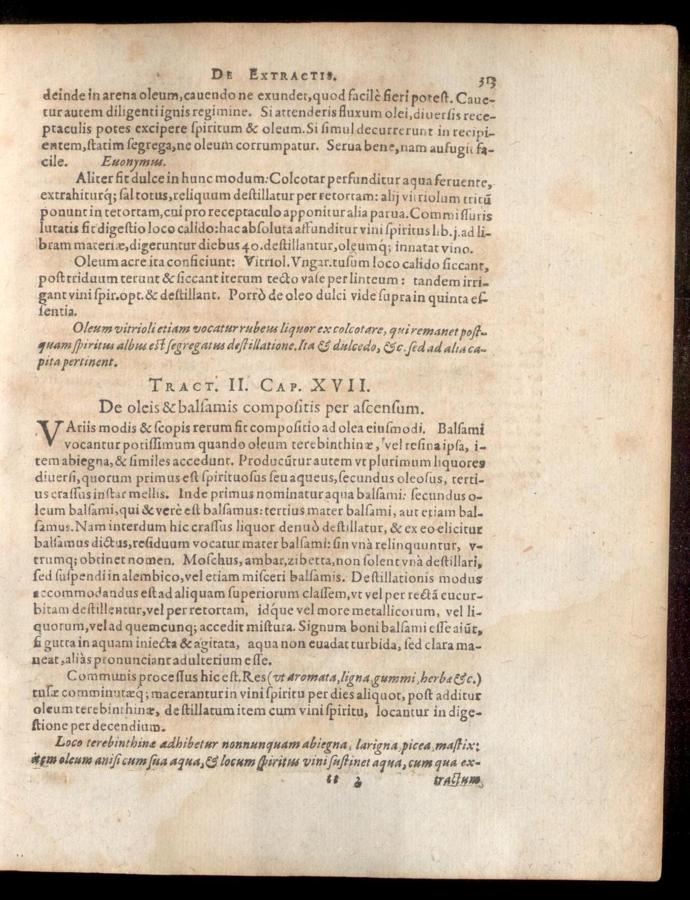 DE EXTRACTIS. 313
deinde in arena oleum, cauendo ne exundet, quod facilè fieri potest. Caue-
tur autem diligenti ignis regimine. Si attenderis fluxum olei, diuersis rece-
ptaculis potes excipere spiritum & oleum. Si simul decurrerunt in recipi-
entem, statim segrega, ne oleum corrumpatur. Serua bene, nam aufugit fa-
cile. Euonymus.
Aliter fit dulce in hunc modum: Colcotar perfunditur aqua feruente,
extrahiturq́; sal totus, reliquum destillatur per retortam: alij vitriolum tritũ
ponunt in retortam, cui pro receptaculo apponitur alia parua. Commissuris
lutatis fit digestio loco calido: hac absoluta affunditur vini spiritus lib.j. ad li-
bram materiæ, digeruntur diebus 40. destillantur, oleumq́; innatat vino.
Oleum acre ita conficiunt: Vitriol. Vngar. tusum loco calido siccant,
post triduum terunt & siccant iterum tecto vase per linteum: tandem irri-
gant vini spir. opt. & destillant. Porrò de oleo dulci vide supra in quinta es-
sentia.
Oleum vitrioli etiam vocatur rubeus liquor ex colcotare, qui remanet post-
quam spiritus albus est segregatus destillatione. Ita & dulcedo, &c. sed ad alia ca-
pita pertinent.
TRACT. II. CAP. XVII.
De oleis & balsamis compositis per ascensum.
VAriis modis & scopis rerum fit compositio ad olea eiusmodi. Balsami
vocantur potissimum quando oleum terebinthinæ, vel resina ipsa, i-
tem abiegna, & similes accedunt. Producũtur autem vt plurimum liquores
diuersi, quorum primus est spirituosus seu aqueus, secundus oleosus, terti-
us crassus instar mellis. Inde primus nominatur aqua balsami: secundus o-
leum balsami, qui & verè est balsamus: tertius mater balsami, aut etiam bal-
samus. Nam interdum hic crassus liquor denuò destillatur, & ex eo elicitur
balsamus dictus, residuum vocatur mater balsami: sin vnà relinquuntur, v-
trumq; obtinet nomen. Moschus, ambar, zibetta, non solent vnà destillari,
sed suspendi in alembico, vel etiam misceri balsamis. Destillationis modus
accommodandus est ad aliquam superiorum classem, vt vel per rectã cucur-
bitam destillentur, vel per retortam, idq́ue vel more metallicorum, vel li-
quorum, vel ad quemcunq; accedit mistura. Signum boni balsami esse aiũt,
si gutta in aquam iniecta & agitata, aqua non euadat turbida, sed clara ma-
neat, aliàs pronunciant adulterium esse.
Communis processus hic est. Res (vt aromata, ligna, gummi, herbæ &c.)
tusæ comminutæq́; macerantur in vini spiritu per dies aliquot, post additur
oleum terebinthinæ, destillatum item cum vini spiritu, locantur in dige-
stione per decendium.
Loco terebinthinæ adhibetur nonnunquam abiegna, larigna, picea, mastix:
item oleum anisi cum sua aqua, & locum spiritus vini sustinet aqua, cum qua ex-
tt 2 tractum